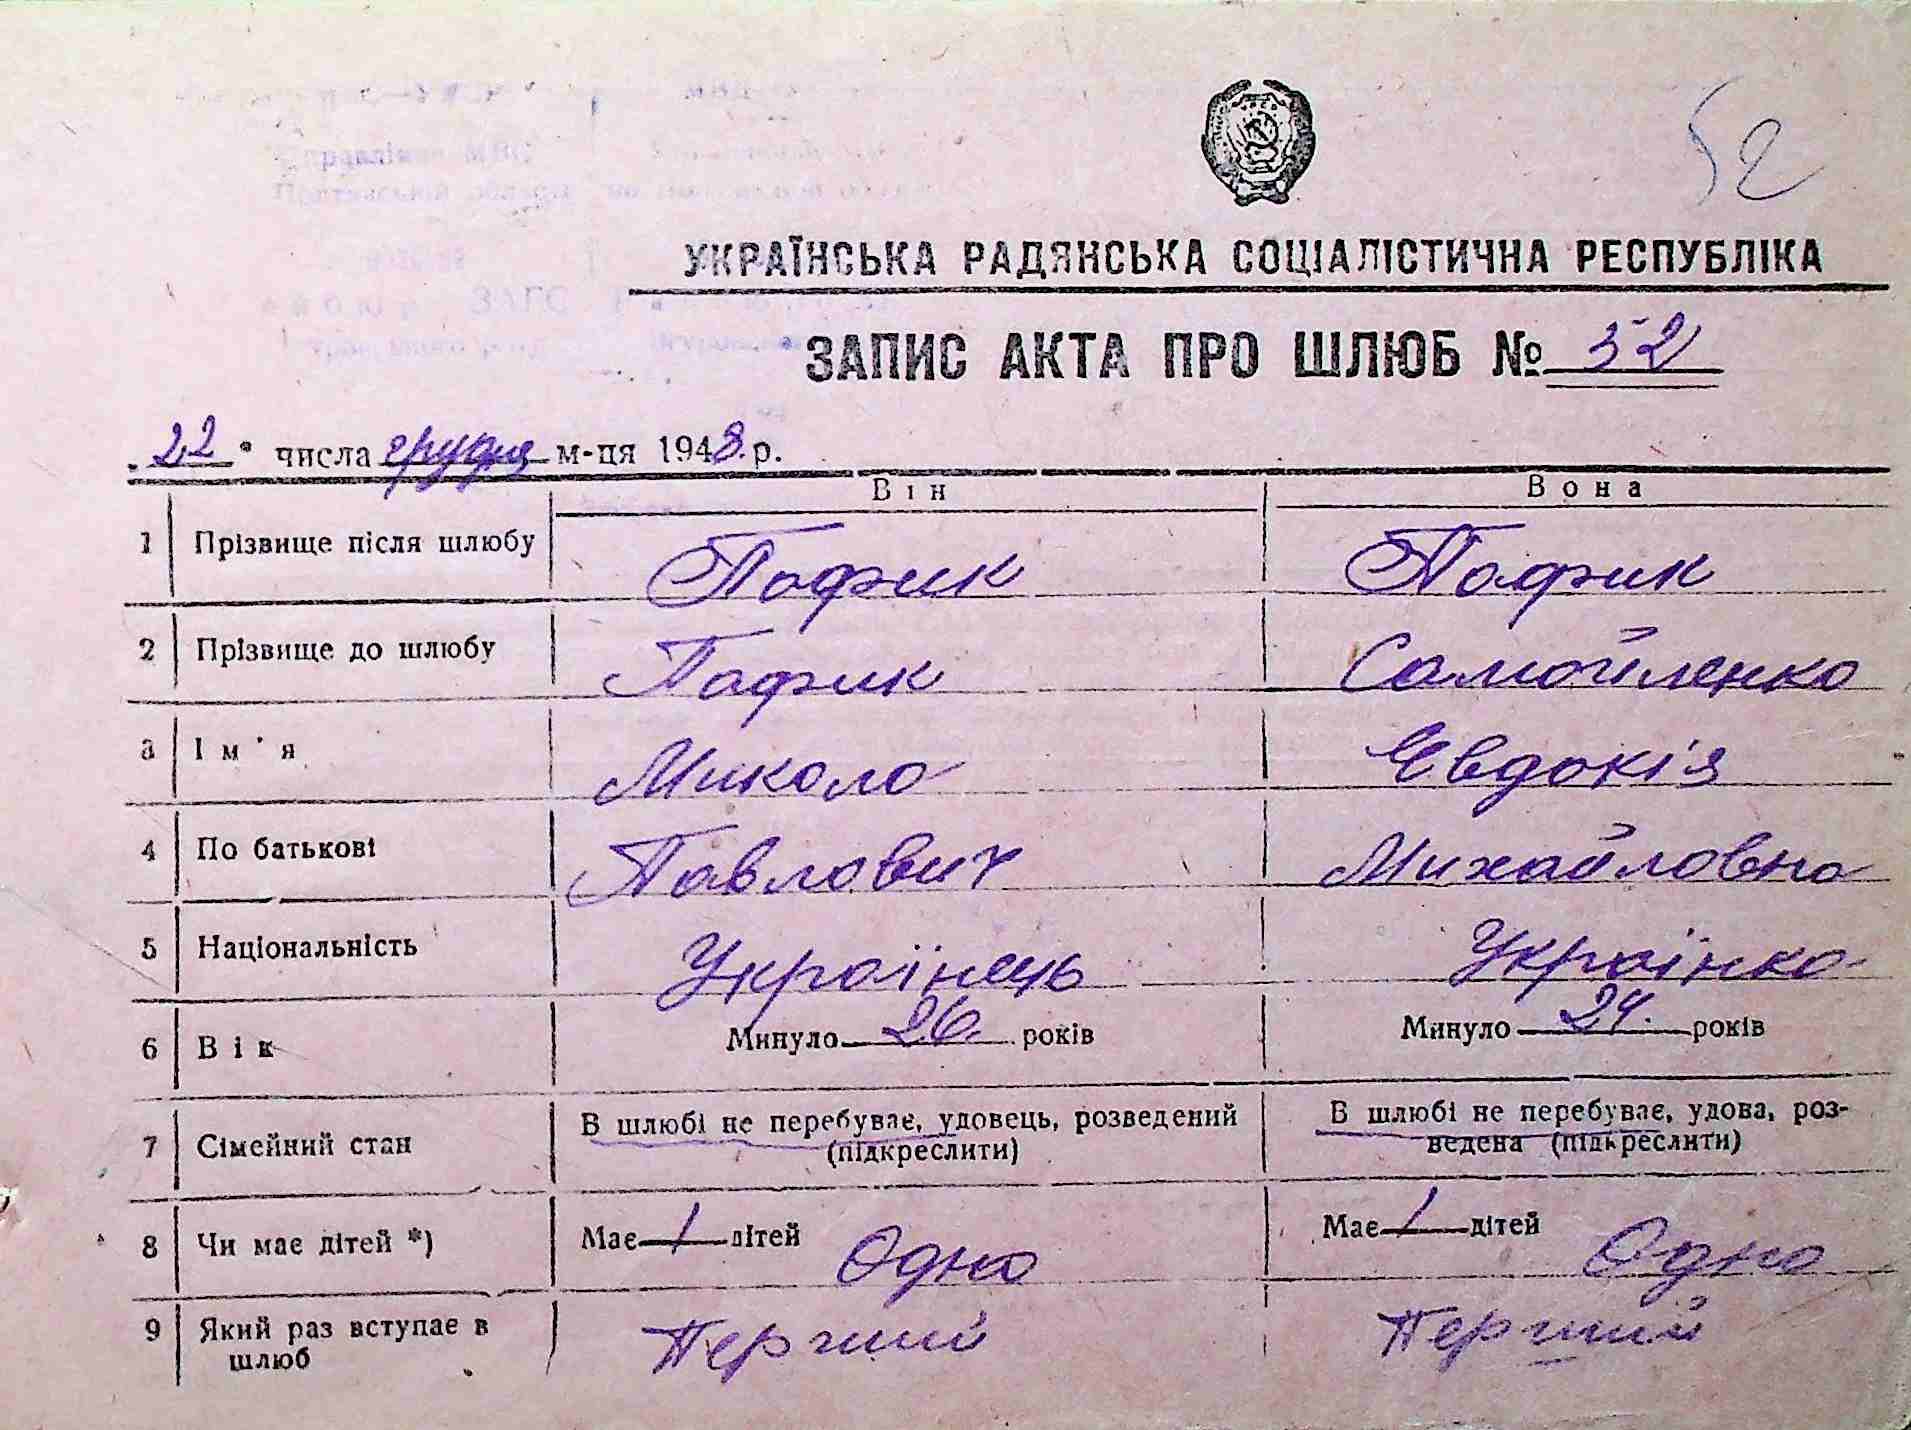 52
УКРАЇНСЬКА РАДЯНСЬКА СОЦІАЛІСТИЧНА РЕСПУБЛІКА
ЗАПИС АКТА ПРО ШЛЮБ № 52
"22" числа грудня м-ця 1948 р.
Він Вона
1 Прізвище після шлюбу Пафик Пафик
2 Прізвище до шлюбу Пафик Самойленко
3 Ім'я Микола Євдокія
4 По батькові Павлович Михайловна
5 Національність Українець Українка
6 Вік Минуло 26. років Минуло 24. років
7 Сімейний стан В шлюбі не перебуває, удовець, розведений (підкреслити) В шлюбі не перебуває, удова, роз-
ведена (підкреслити)
8 Чи має дітей *) Має 1 дітей Одно Має 1 дітей Одно
9 Який раз вступає в Перший Перший
шлюб